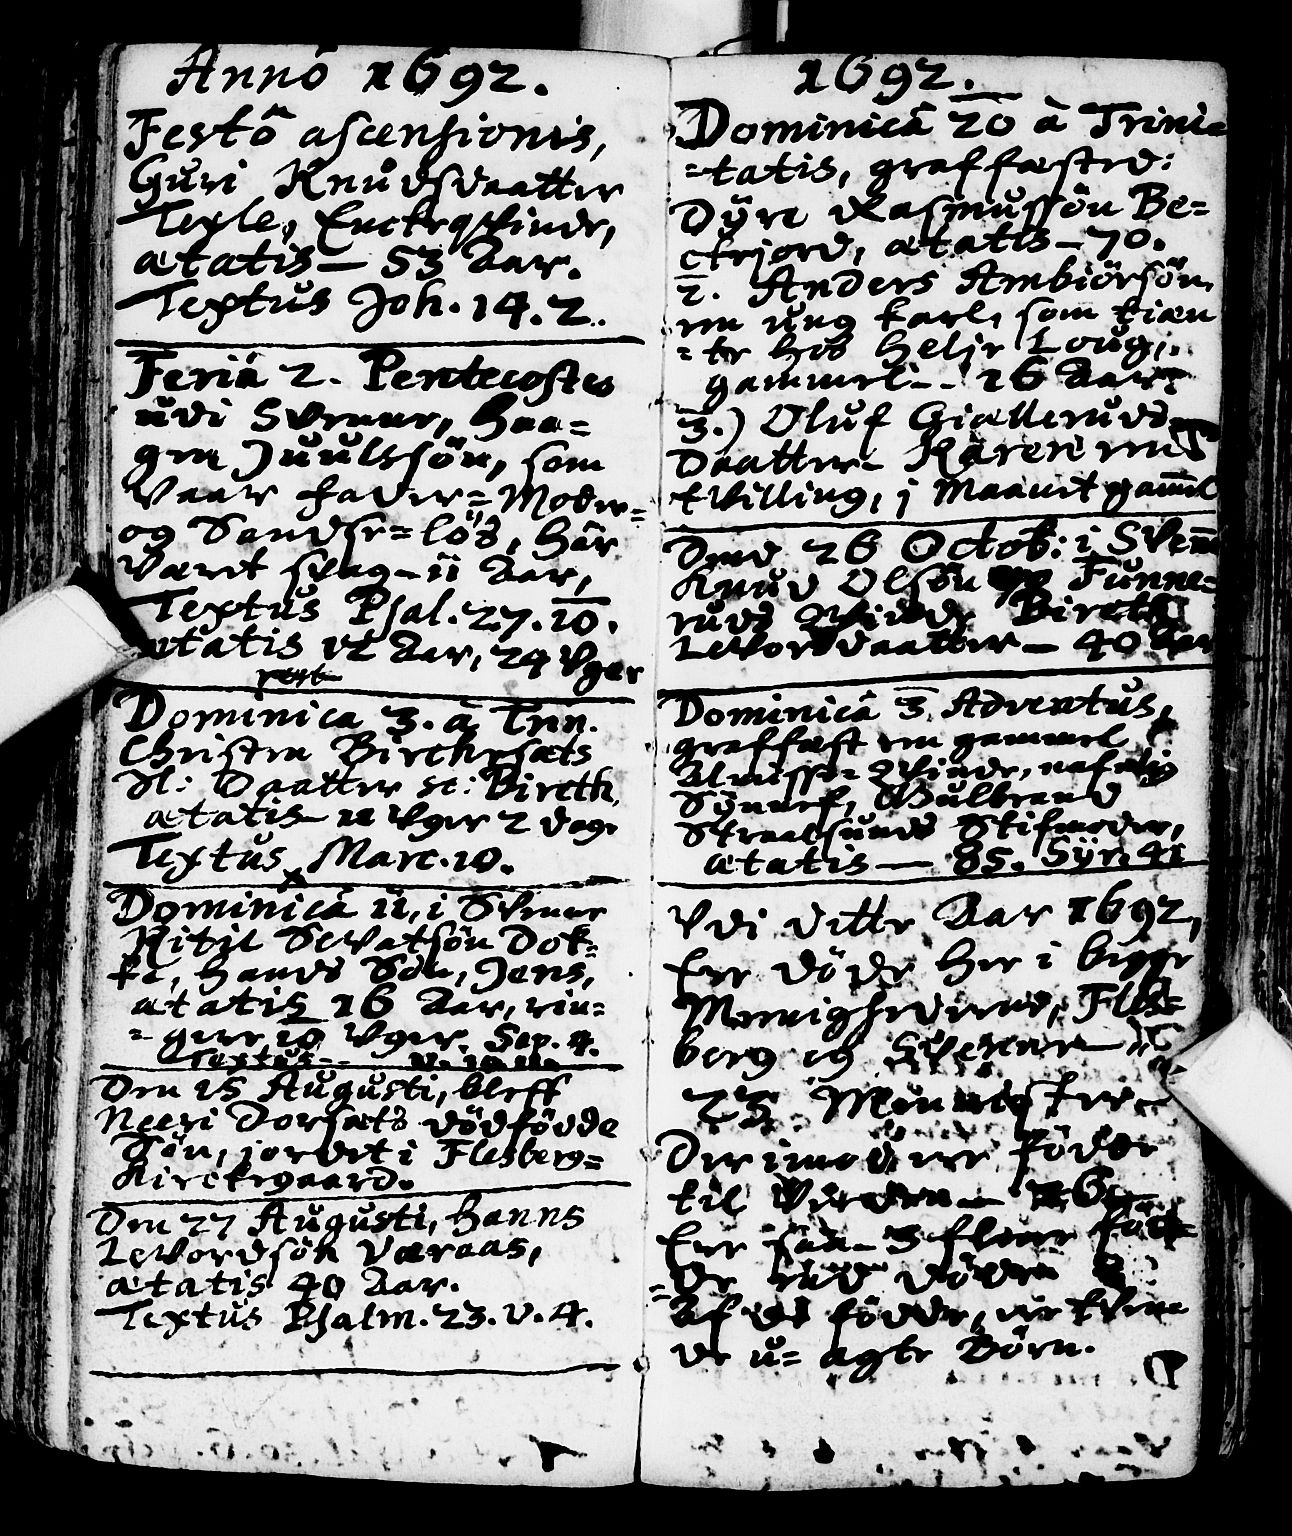 Annô 1692.
Festô ascensionis,
Guri Knudsdaatter
Texle, Enckeqvinde,
ætatis — 53 Aar.
Textus Joh. 14. 2.
Feriâ 2. Pentecostes
udi Svenne, Haa=
gen Juulssön, som
Vaar Fader= Moder=
og Sandse=lös, hâr
Værit svag — 11 Aar,
Textus Psal. 27. 10.
ætatis 12 Aar, 24 Vger
Dominica 3. à Trin.
Christen Birchesæts
Daatter sc: Bireth,
ætatis 11 Vger 2 dage
Textus Marc. 10.
Dominicâ 11, i Svenne
Kitil Sevatsön Dok=
ke, hands Sön, Jens,
ætatis 16 Aar, rin=
=gere 10 Vger. Sep. 4.
Textus
Den 15 Augusti, bleff
Neeri Dorsæts dödfödde
Sön, jordet i Flesberg=
Kirckegaard.
Den 27 Augusti, Hanns
Levordsön Væraas,
ætatis 40 Aar.
Textus Psalm. 23. v. 4.
1692.
Dominicâ 20 à Trini=
=tatis, graffæsted:
Dÿre Rasmussön Be=
ckejord, ætatis — 70.
2. Anders Ambiörsön,
en ung karl, som tiæn
=te hos Helje Loug,
gammel -- 16 Aar.
3.) Oluf Giælleruds
Daatter Karen een
tvilling, j Maanet gaml
Dend 26 Octob: i Svenne
Knud Olsön Funne=
ruds Qvinde Bireth
Levordsdaatter — 40 Aar
Dominicâ 3 Adventus,
graffæst en gammel
Almisse= Qvinde, nafnlig
Synnef, Gulbrand
Straalsunds Stifmoder,
ætatis — 85. Syr. 41
Vdi dette Aar 1692,
Ere döde her i begge
Menighederne, Fles=
berg og Svenne
23 Mennister.
Der imod ere födde
til Verden — 26.
Ere saa — 3 flere föd=
=de end döde.
Af de födde, ere tvende
de u= ægte Börn.